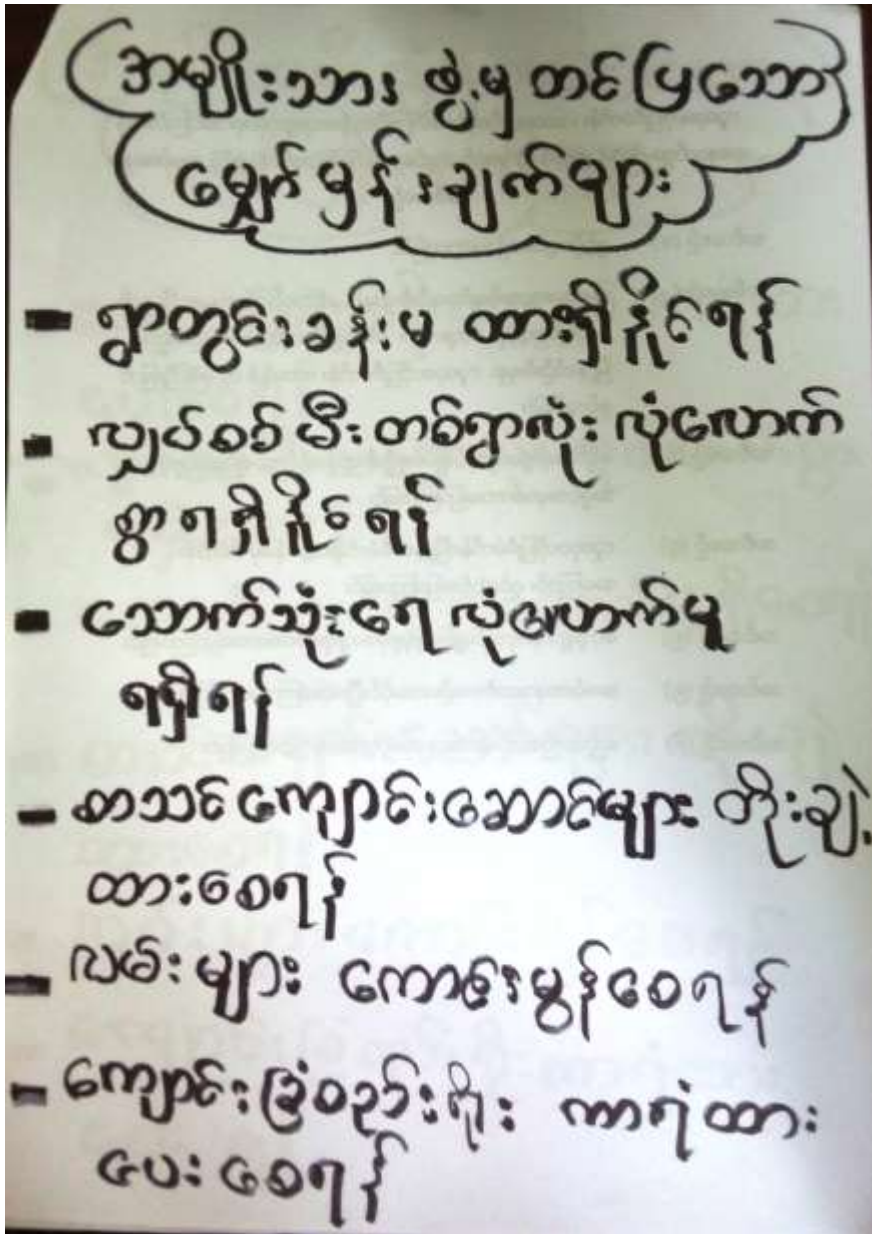 အမျိုးသား ဖွဲ့မှ တင်ပြသော
မျှော်မှန်းချက်များ
- ရွာတွင်းခန်းမ ထားရှိနိုင်ရန်
- လျှပ်စစ်မီး တစ်ရွာလုံး လုံလောက်
စွာ ရရှိနိုင်ရန်
- သောက်သုံးရေ လုံလောက်မှု
ရရှိရန်
- စာသင်ကျောင်းဆောင်များ တိုးချဲ့
ထားစေရန်
- လမ်းများ ကောင်းမွန်စေရန်
- ကျောင်းခြံစည်းရိုး ကာရံထား
ပေးစေရန်